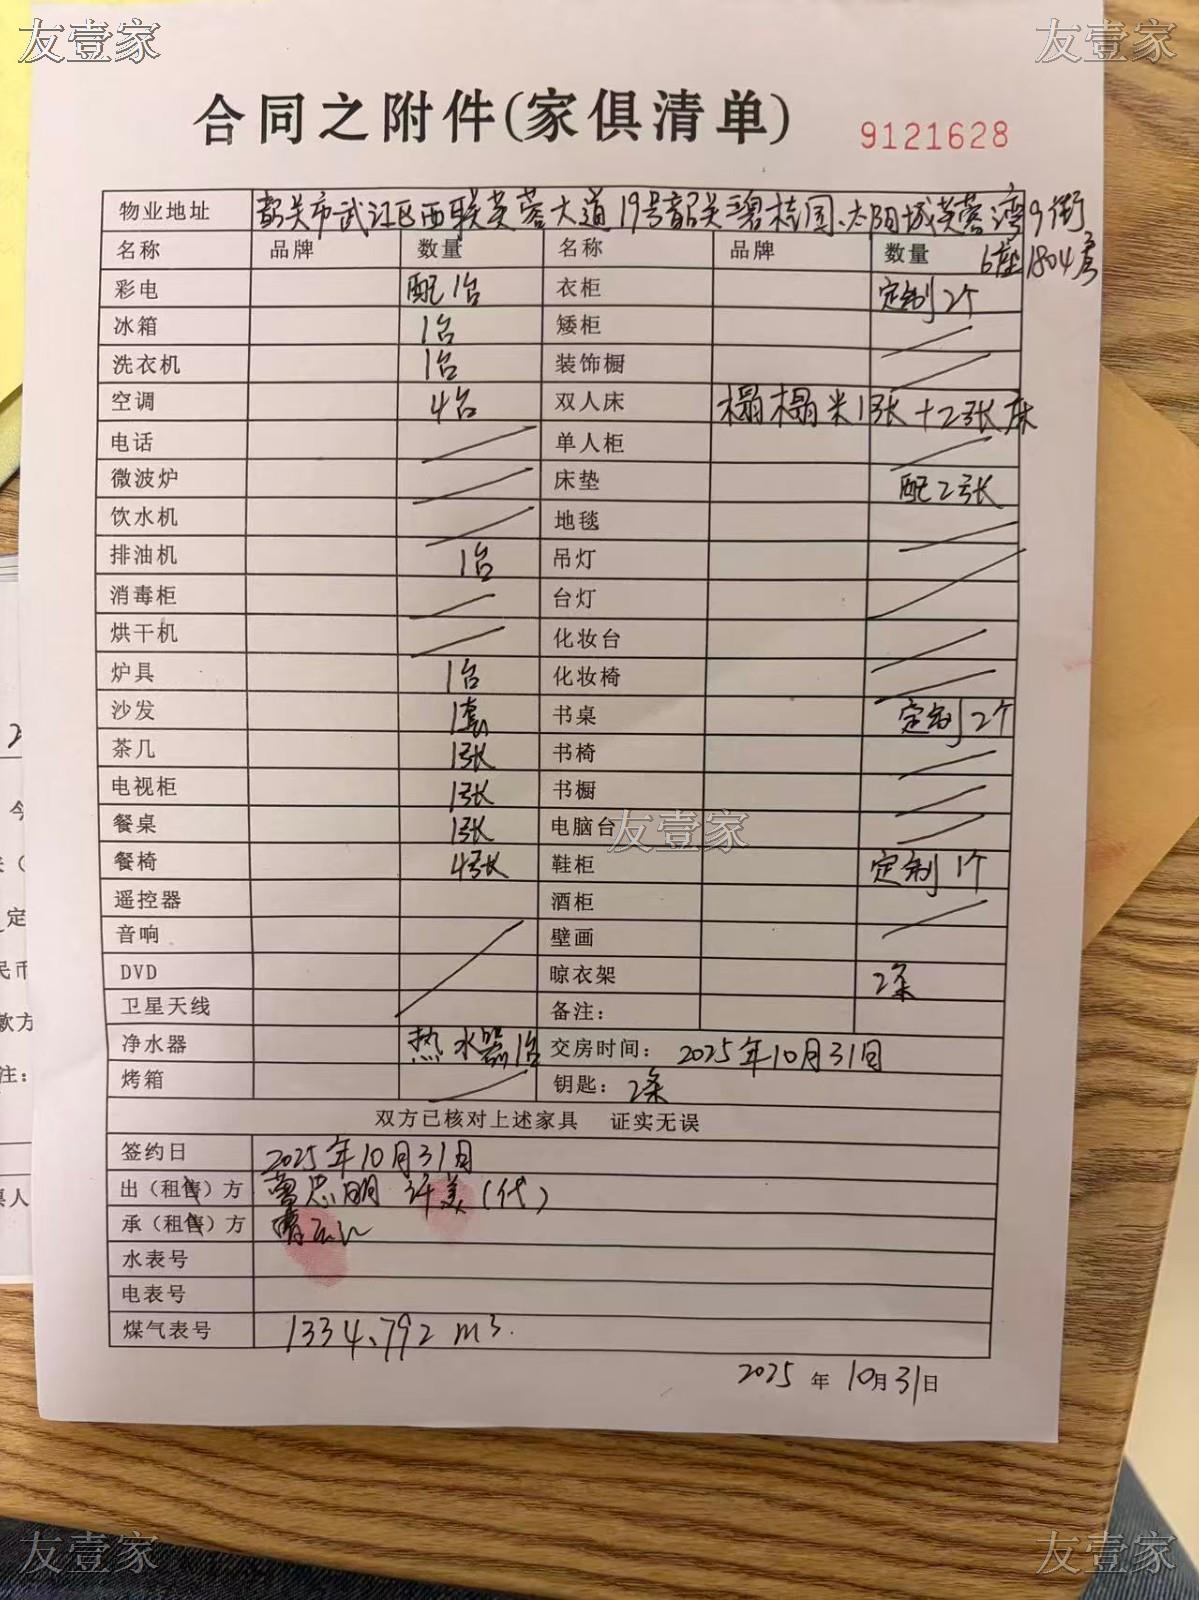 友壹家 友壹家
合同之附件(家俱清单) 9121628
物业地址 韶关市武江区西联芙蓉大道19号韶关碧桂园.太阳城芙蓉湾9街
6座1804房
名称 品牌 数量 名称 品牌 数量
彩电 配1台 衣柜 定制2个
冰箱 1台 矮柜
洗衣机 1台 装饰橱
空调 4台 双人床 榻榻米1张+2张床
电话 单人柜
微波炉 床垫 配2张
饮水机 地毯
排油机 1台 吊灯
消毒柜 台灯
烘干机 化妆台
炉具 1台 化妆椅
沙发 1套 书桌 定制2个
茶几 1张 书椅
电视柜 1张 书橱
餐桌 1张 电脑台
友壹家
餐椅 4张 鞋柜 定制1个
遥控器 酒柜
音响 壁画
DVD 晾衣架 2条
卫星天线 备注：
净水器 热水器1台 交房时间： 2025年10月31日
烤箱 钥匙： 2条
双方已核对上述家具 证实无误
签约日 2025年10月31日
出（租售）方 明 许美(代)
承（租售）方
水表号
电表号
煤气表号 1334.792 m³.
2025 年 10月31日
友壹家 友壹家